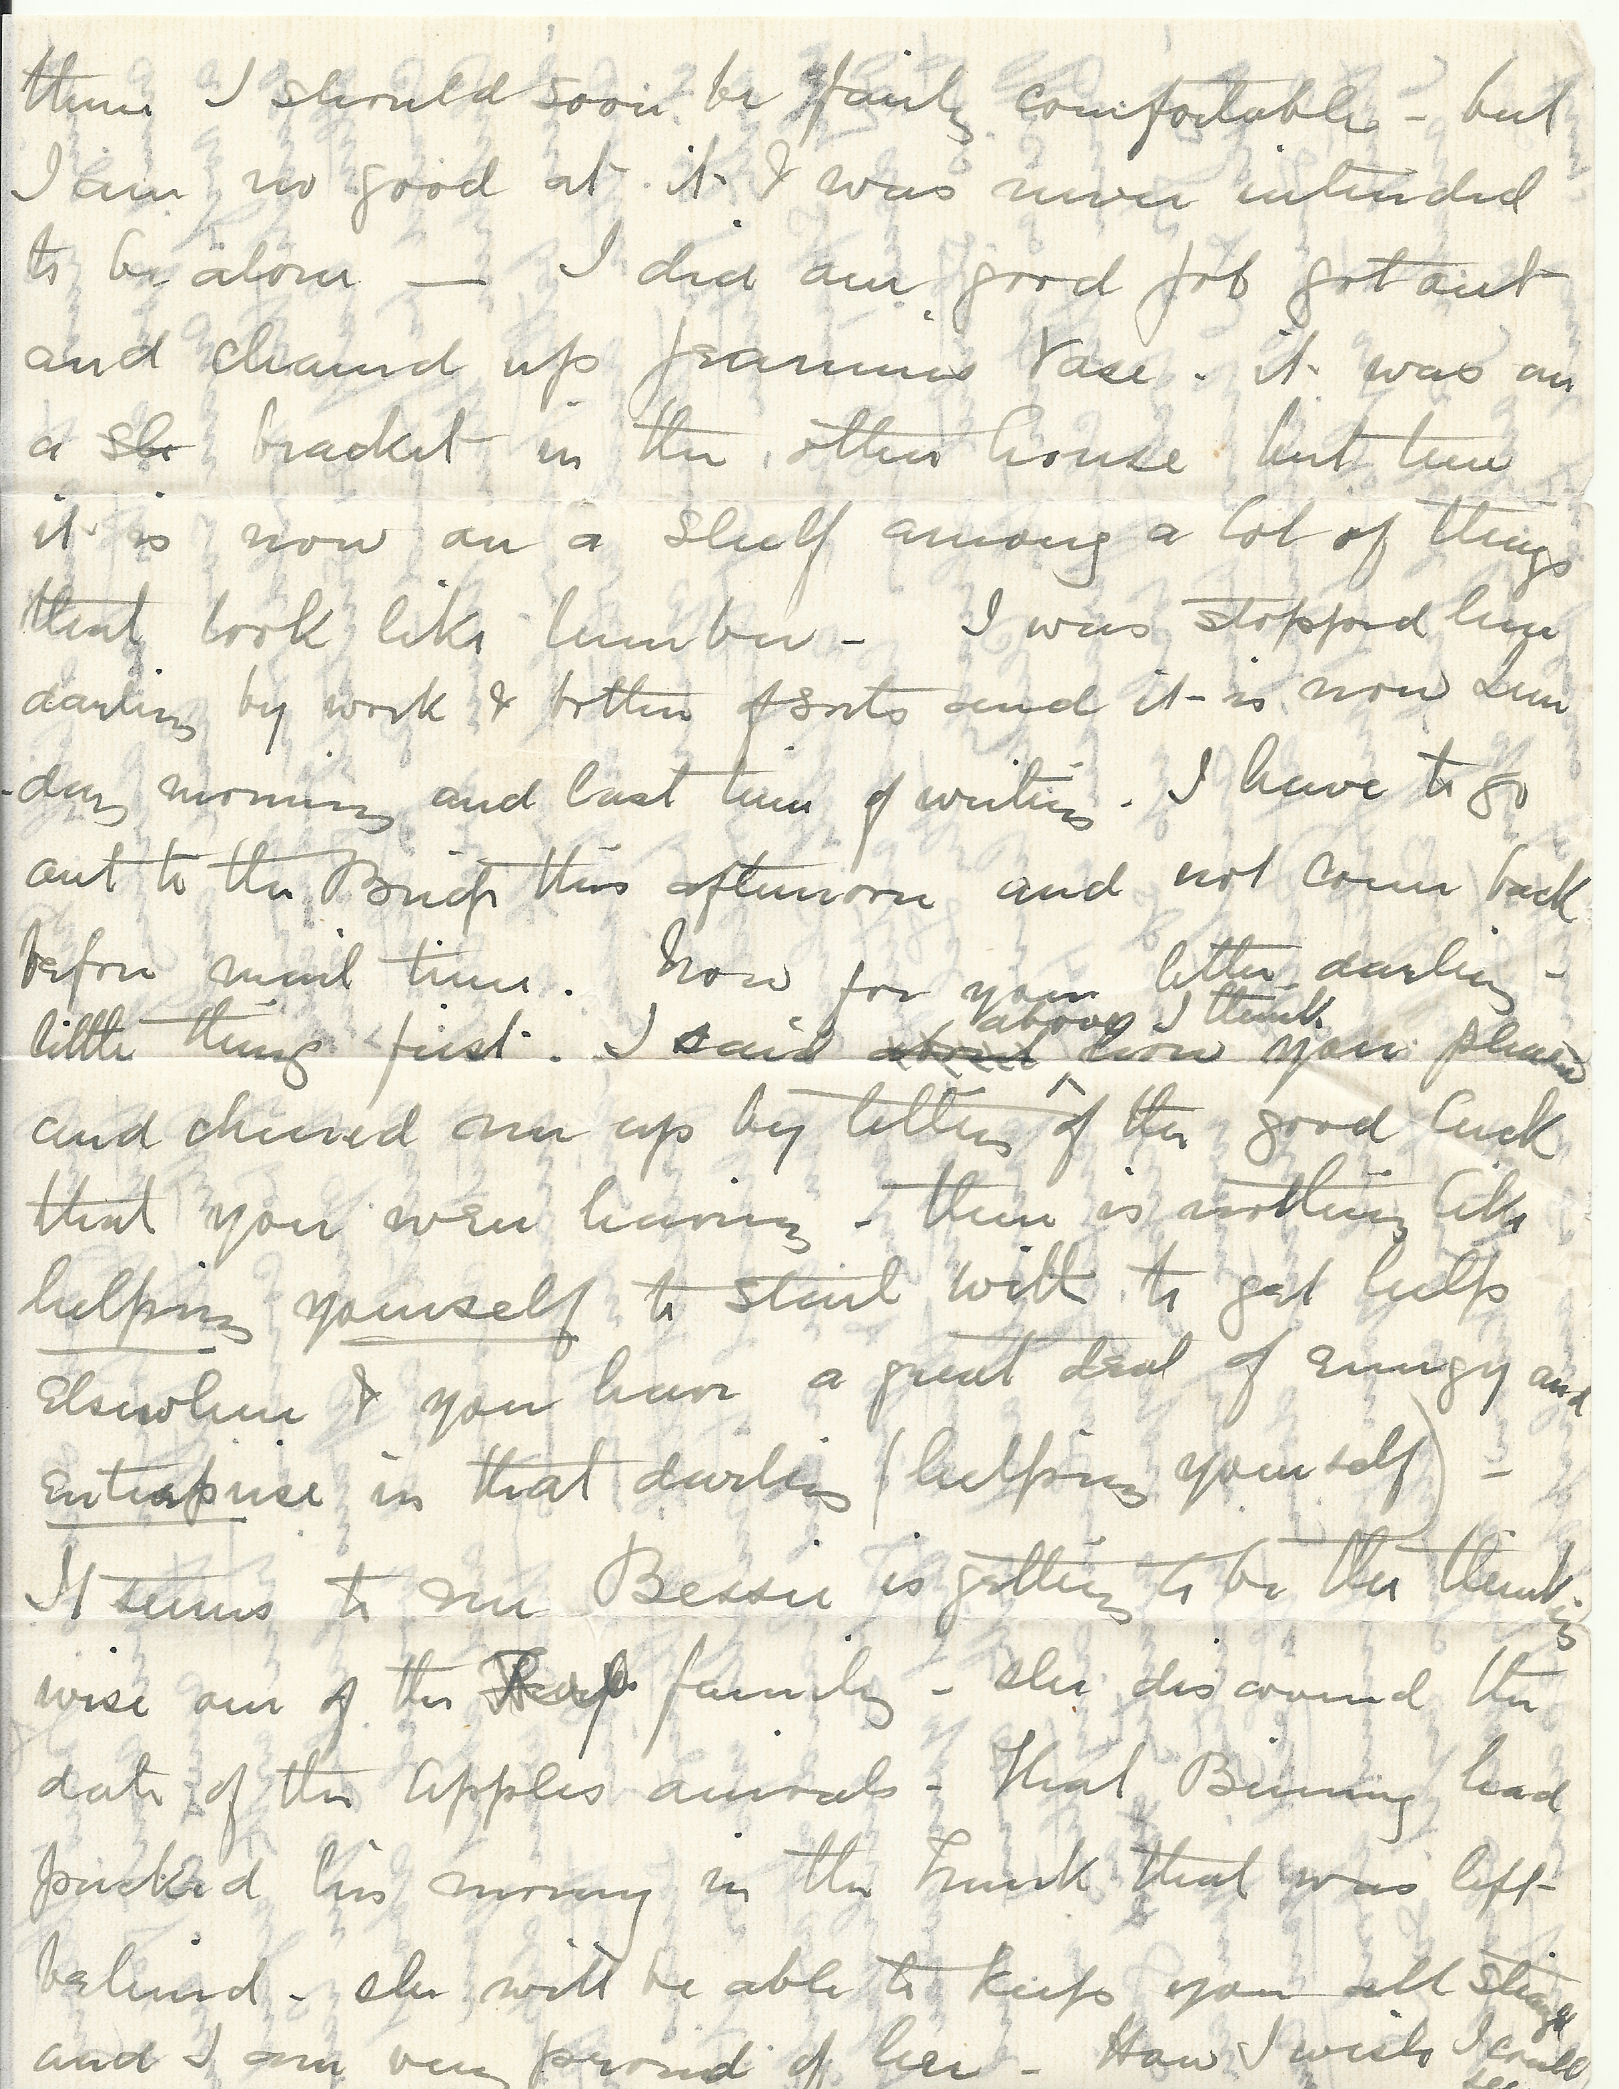 them I should soon be fairly comfortable - but
I am no good at it & was never intended
to be alone — I did one good job got out
and cleaned up Jeannie's Vase. it was on
a she bracket in the other house but here
it is now on a shelf among a lot of things
that look like lumber - I was stopped here
darling by work & bother of sorts and it is now Sun
-day morning and last time of writing. I have to go
out to the Bridge this afternoon and not come back
before mail time. Now for your letter darling -
little things first. I said about how you pleased
above I think
and cheered me up by telling ^ of the good luck
that you were having - there is nothing like
helping yourself to start with to get help
elsewhere & you have a great deal of energy and
enterprise in that darling (helping yourself) -
It seems to me Bessie is getting to be the thinking
wise one of the family - she discovered the
date of the apples arrivals - That Binning had
packed his money in the trunk that was left
behind - she will be able to keep you all straight
and I am very proud of her - How I wish I could
see